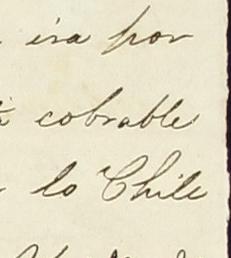 ira por
cobrable
lo Chile